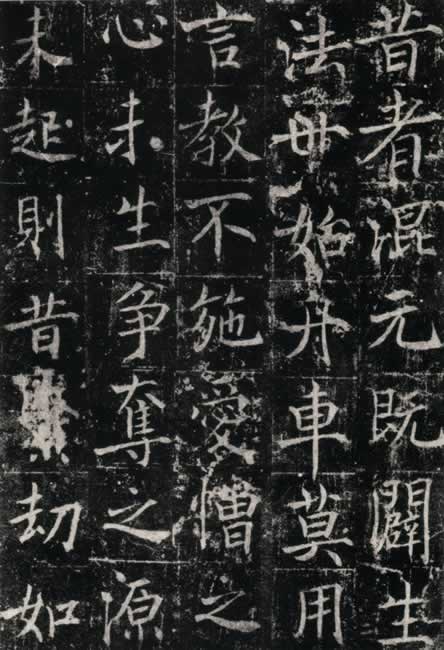 昔者混元既闢生
法始舟車莫用
言教不施愛憎之
心未生争奪之源
未起則昔劫如